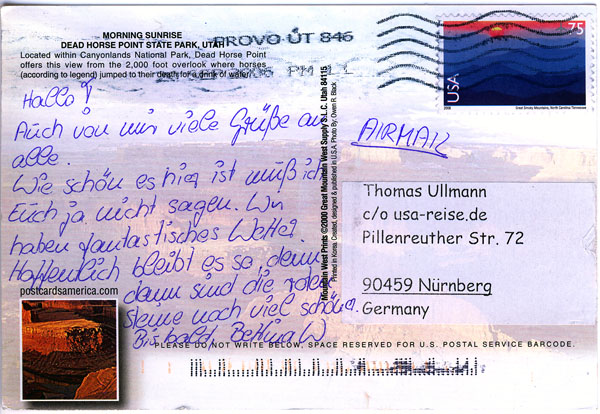 MORNING SUNRISE
DEAD HORSE POINT STATE PARK, UTAH
Located within Canyonlands National Park, Dead Horse Point
offers this view from the 2,000 foot overlook where horses
(according to legend) jumped to their death for a drink of water.
PROVO UT 846
75
USA
Great Smoky Mountains, North Carolina-Tennessee
Hallo!
Auch von mir viele Grüße an
alle.
Wie schön es hier ist muß ich
Euch ja nicht sagen. Wir
haben fantastisches Wetter.
Hoffentlich bleibt es so, denn
dann sind die roten
Steine noch viel schöner.
Bis bald Bettina W
AIRMAIL
Thomas Ullmann
c/o usa-reise.de
Pillenreuther Str. 72
90459 Nürnberg
Germany
Mountain West Prints ©2000 Great Mountain West Supply S.L.C. Utah 84115
Printed in Korea. Created, designed & published in U.S.A. Photo By: Owen R. Black
postcardsamerica.com
PLEASE DO NOT WRITE BELOW, SPACE RESERVED FOR U.S. POSTAL SERVICE BARCODE.